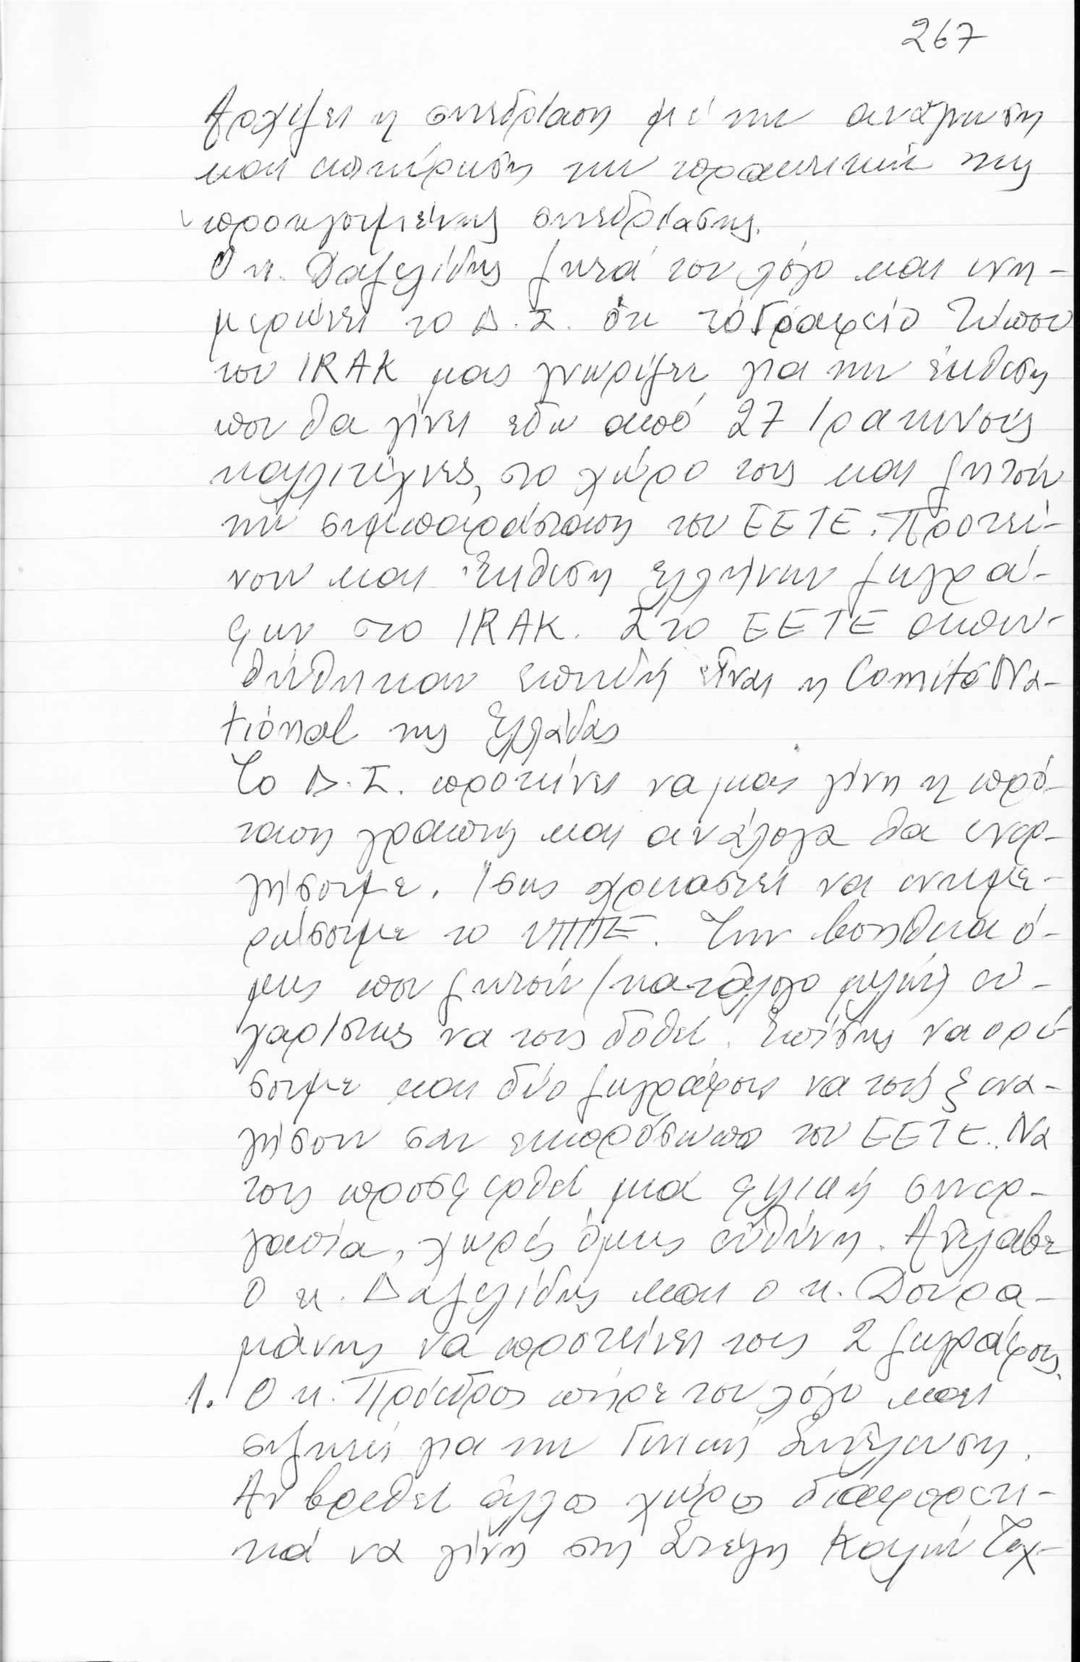 267
Αρχίζει η συνεδρίαση μέ την ανάγνωση
και επικύρωση των πρακτικών της
προηγουμένης συνεδρίασης.
Ο κ. Δαβελίδης ζητά τον λόγο και ενη-
μερώνει το Δ.Σ. ότι τό Γραφείο Τύπου
του ΙRAK μας γνωρίζει για την έκθεση
που θα γίνει εδώ από 27 Ιρακινούς
καλλιτέχνες, στο χώρο τους και ζητούν
τήν συμπαράσταση του ΕΕΤΕ. Προτεί-
νουν και έκθεση ελλήνων ζωγρά-
φων στο IRAK. Στο ΕΕΤΕ απευ-
θύνθηκαν επειδή είναι η Comité Na-
tional της Ελλάδας
Το Δ.Σ. προτείνει να μας γίνη η πρό-
ταση γραπτή και ανάλογα θα ενερ-
γήσουμε. Ίσως χρειαστεί να ενημε-
ρώσουμε το ΥΠΠΕ. Την βοήθεια ό-
μως που ζητούν (κατάλογο μελών) ευ-
χαρίστως να τους δοθεί. Επίσης να ορί-
σουμε και δύο ζωγράφους να τούς ξενα-
γήσουν σαν εκπρόσωποι του ΕΕΤΕ. Να
τους προσφερθεί μια φιλική συνερ-
γασία, χωρίς όμως ευθύνη. Ανέλαβε
Ο κ. Δαβελίδης και ο κ. Δουρα-
μάνης να προτείνει τους 2 ζωγράφους.
1. Ο κ. Πρόεδρος πήρε τον λόγο και
συζητεί για την Γενική Συνέλευση.
Αν βρεθεί άλλος χώρος διαφορετι-
κά να γίνη στη Στέγη Καλών Τεχ-